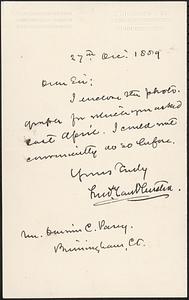 27th Dec. 1889
Dear Sir:
I enclose the photo-
graph for which you asked
last April. I could not
conveniently do so before.
Yours truly
Mr. C. Parry,
Birmingham, Ct.